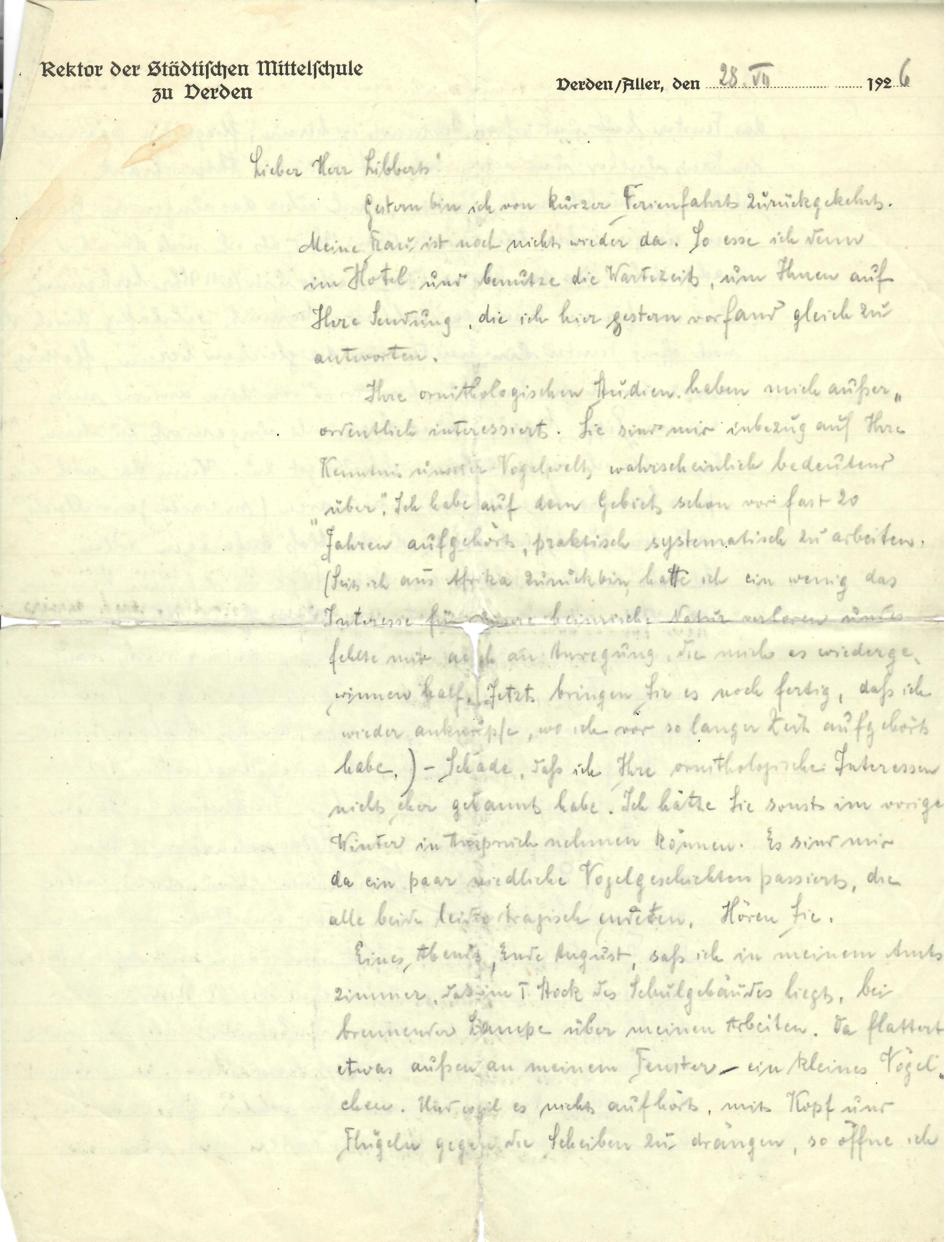 Rektor der Städtischen Mittelschule
zu Verden
Verden/Aller, den 28. VII 1926
Lieber Herr Libbert!
Gestern bin ich von kurzer Ferienfahrt zurückgekehrt.
Meine Frau ist noch nicht wieder da. So esse ich denn
im Hotel und benutze die Wartezeit, um Ihnen auf
Ihre Sendung, die ich hier gestern vorfand gleich zu
antworten.
Ihre ornithologischen Studien haben mich außer„
ordentlich interessiert. Sie sind mir inbezug auf Ihre
Kenntnis unserer Vogelwelt wahrscheinlich bedeutend
„über". Ich habe auf dem Gebiet schon vor fast 20
Jahren aufgehört, praktisch systematisch zu arbeiten.
(Seit ich aus Afrika zurückbin, hatte ich ein wenig das
Interesse für unsere heimische Natur verloren und es
fehlte mir auch an Anregung, die mich es wiederge„
winnen half. Jetzt bringen Sie es noch fertig, daß ich
wieder anknüpfe, wo ich vor so langer Zeit aufgehört
habe.) – Schade, daß ich Ihre ornithologische Interessen
nicht eher gekannt habe. Ich hätte Sie sonst im vorige
Winter in Anspruch nehmen können. Es sind mir
da ein paar niedliche Vogelgeschichten passiert, die
alle beide leider tragisch endeten. Hören Sie.
Eines Abends, Ende August, saß ich in meinem Amts
zimmer, das im I. Stock des Schulgebäudes liegt, bei
brennender Lampe über meinen Arbeiten. Da flattert
etwas außen an meinem Fenster – ein kleines Vögel„
chen. Und weil es nicht aufhört, mit Kopf und
Flügeln gegen die Scheiben zu drängen, so öffne ich